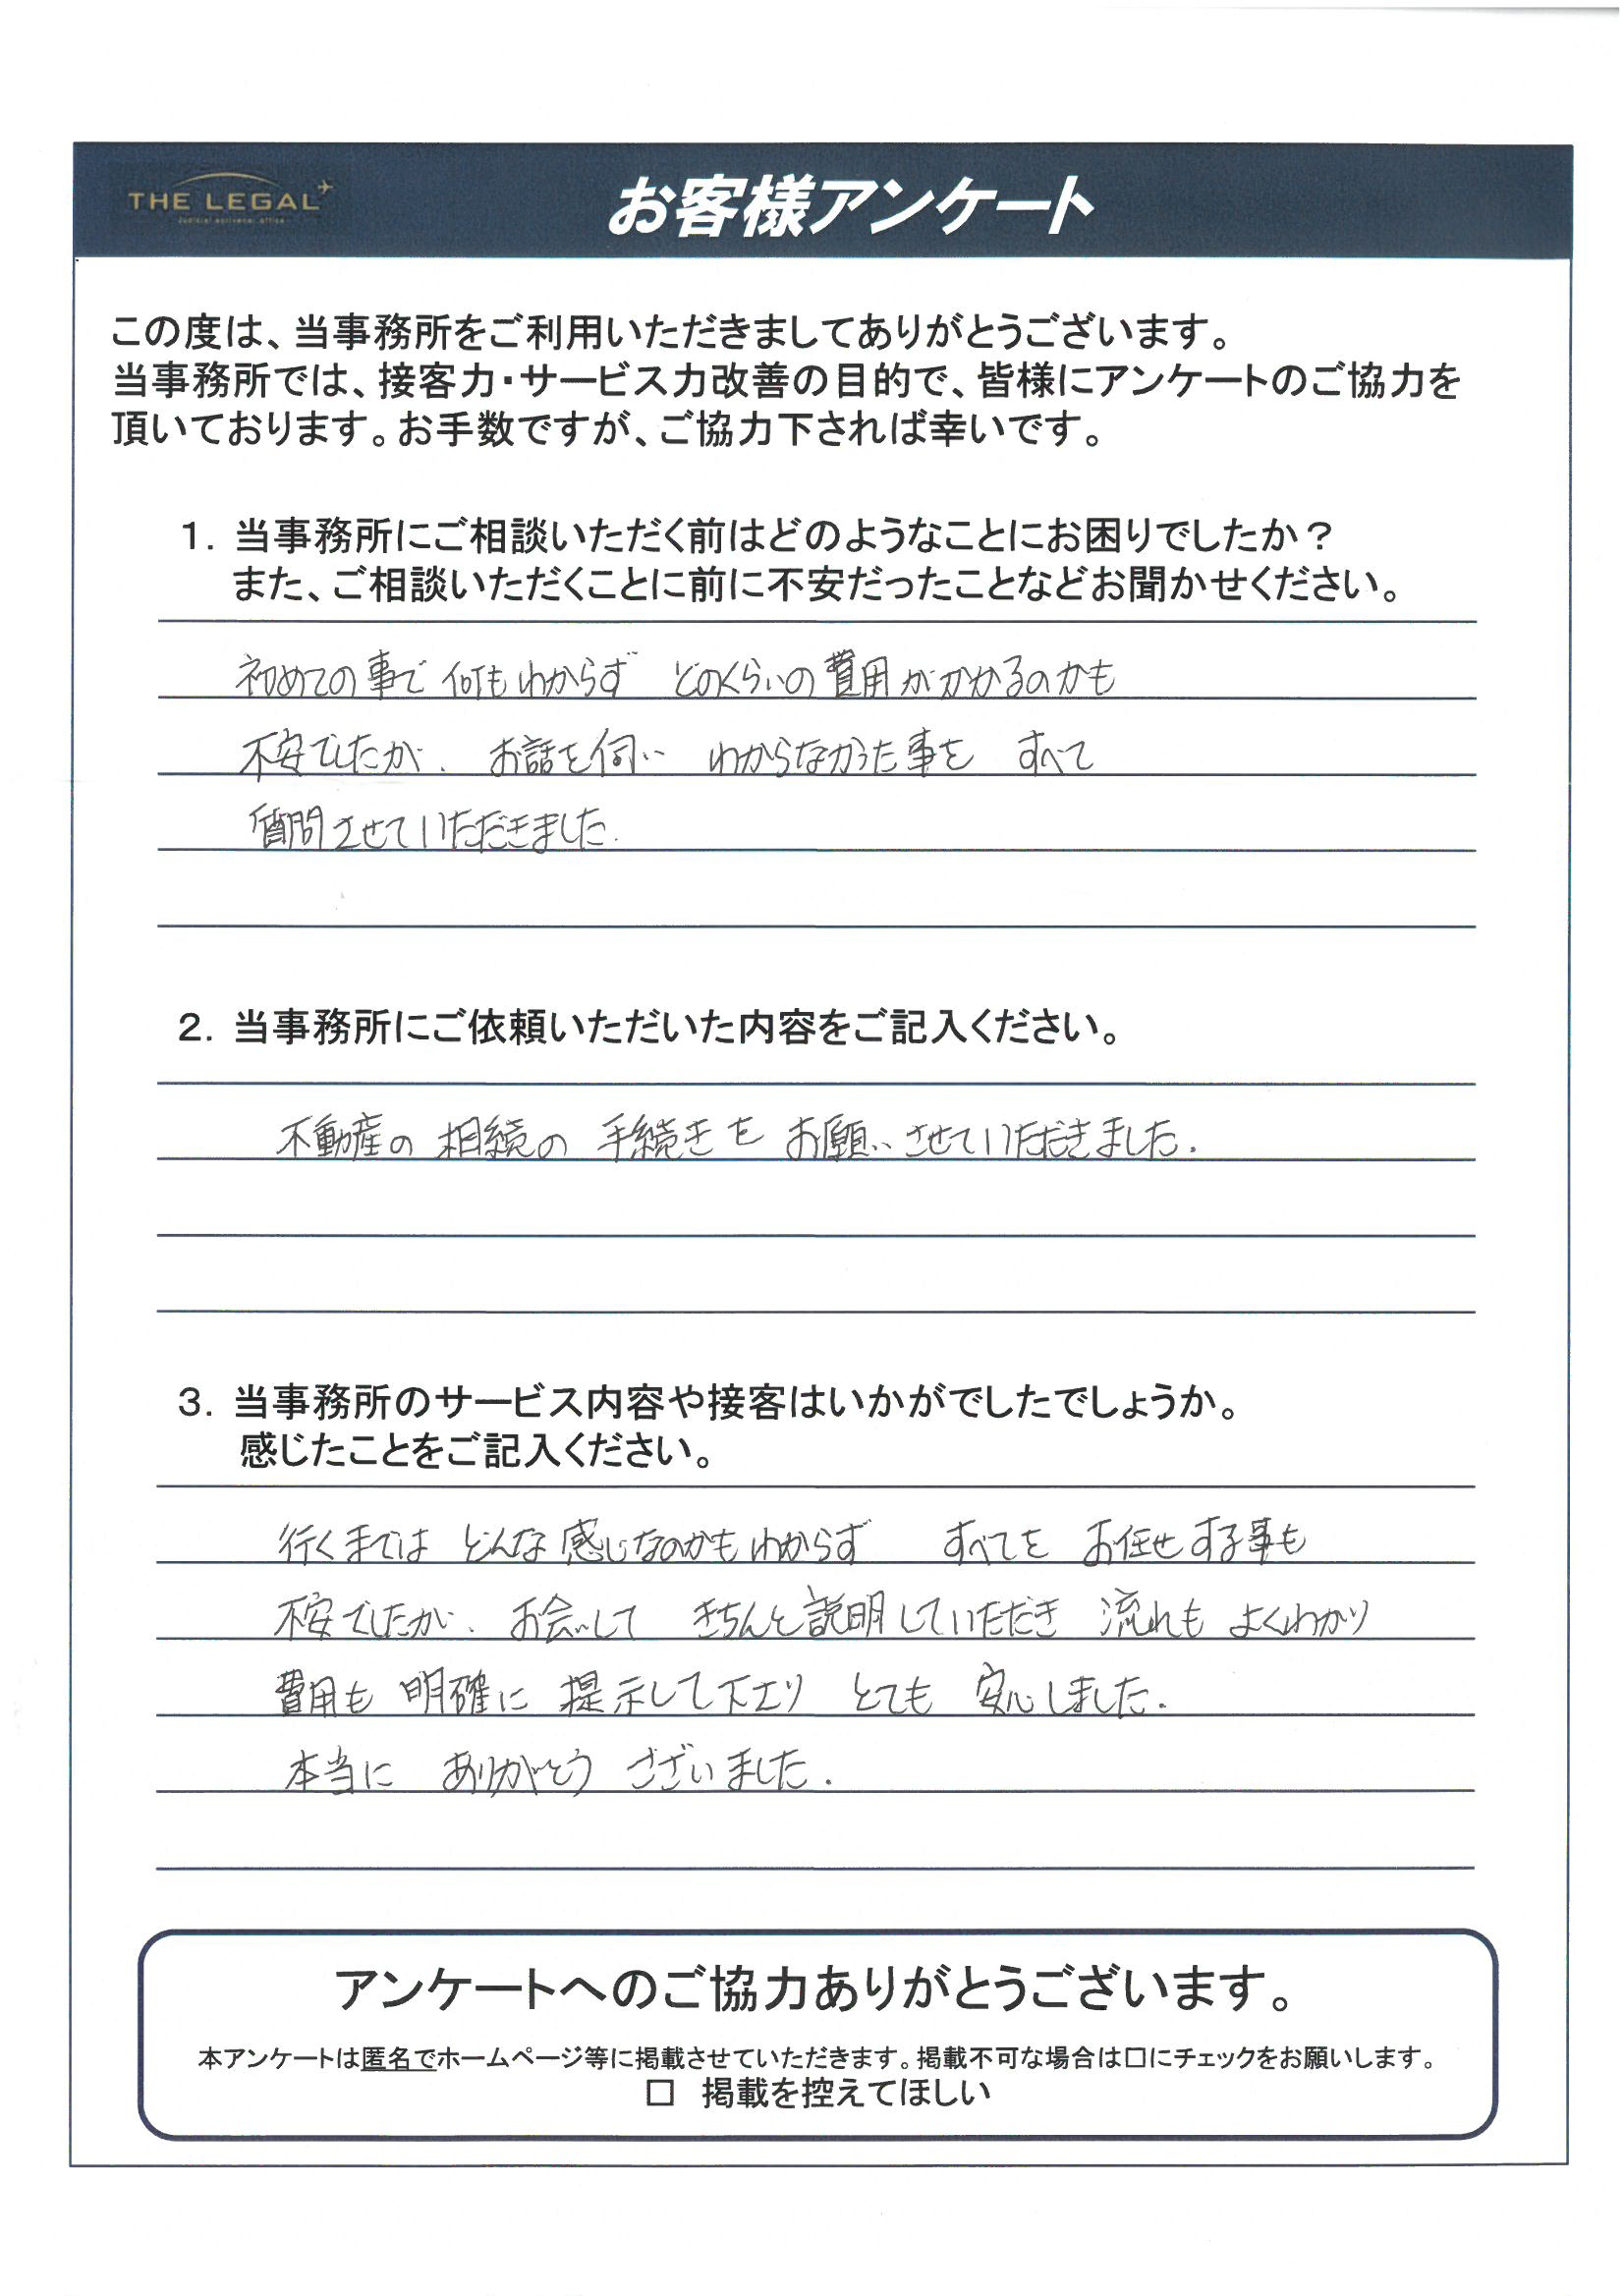 THE LEGAL
Judicial scrivener office
お客様アンケート
この度は、当事務所をご利用いただきましてありがとうございます。
当事務所では、接客力・サービス力改善の目的で、皆様にアンケートのご協力を
頂いております。お手数ですが、ご協力下されば幸いです。
1. 当事務所にご相談いただく前はどのようなことにお困りでしたか？
また、ご相談いただくことに前に不安だったことなどお聞かせください。
初めての事で何もわからず どのくらいの費用がかかるのかも
不安でしたが、お話を伺い わからなかった事を すべて
質問させていただきました.
2. 当事務所にご依頼いただいた内容をご記入ください。
不動産の 相続の 手続きを お願いさせていただきました.
3. 当事務所のサービス内容や接客はいかがでしたでしょうか。
感じたことをご記入ください。
行くまでは どんな感じなのかもわからず すべてを お任せする事も
不安でしたが、お会いして きちんと説明していただき 流れも よくわかり
費用も 明確に 提示して下さり とても 安心しました.
本当に ありがとう ございました.
アンケートへのご協力ありがとうございます。
本アンケートは匿名でホームページ等に掲載させていただきます。掲載不可な場合は□にチェックをお願いします。
□ 掲載を控えてほしい